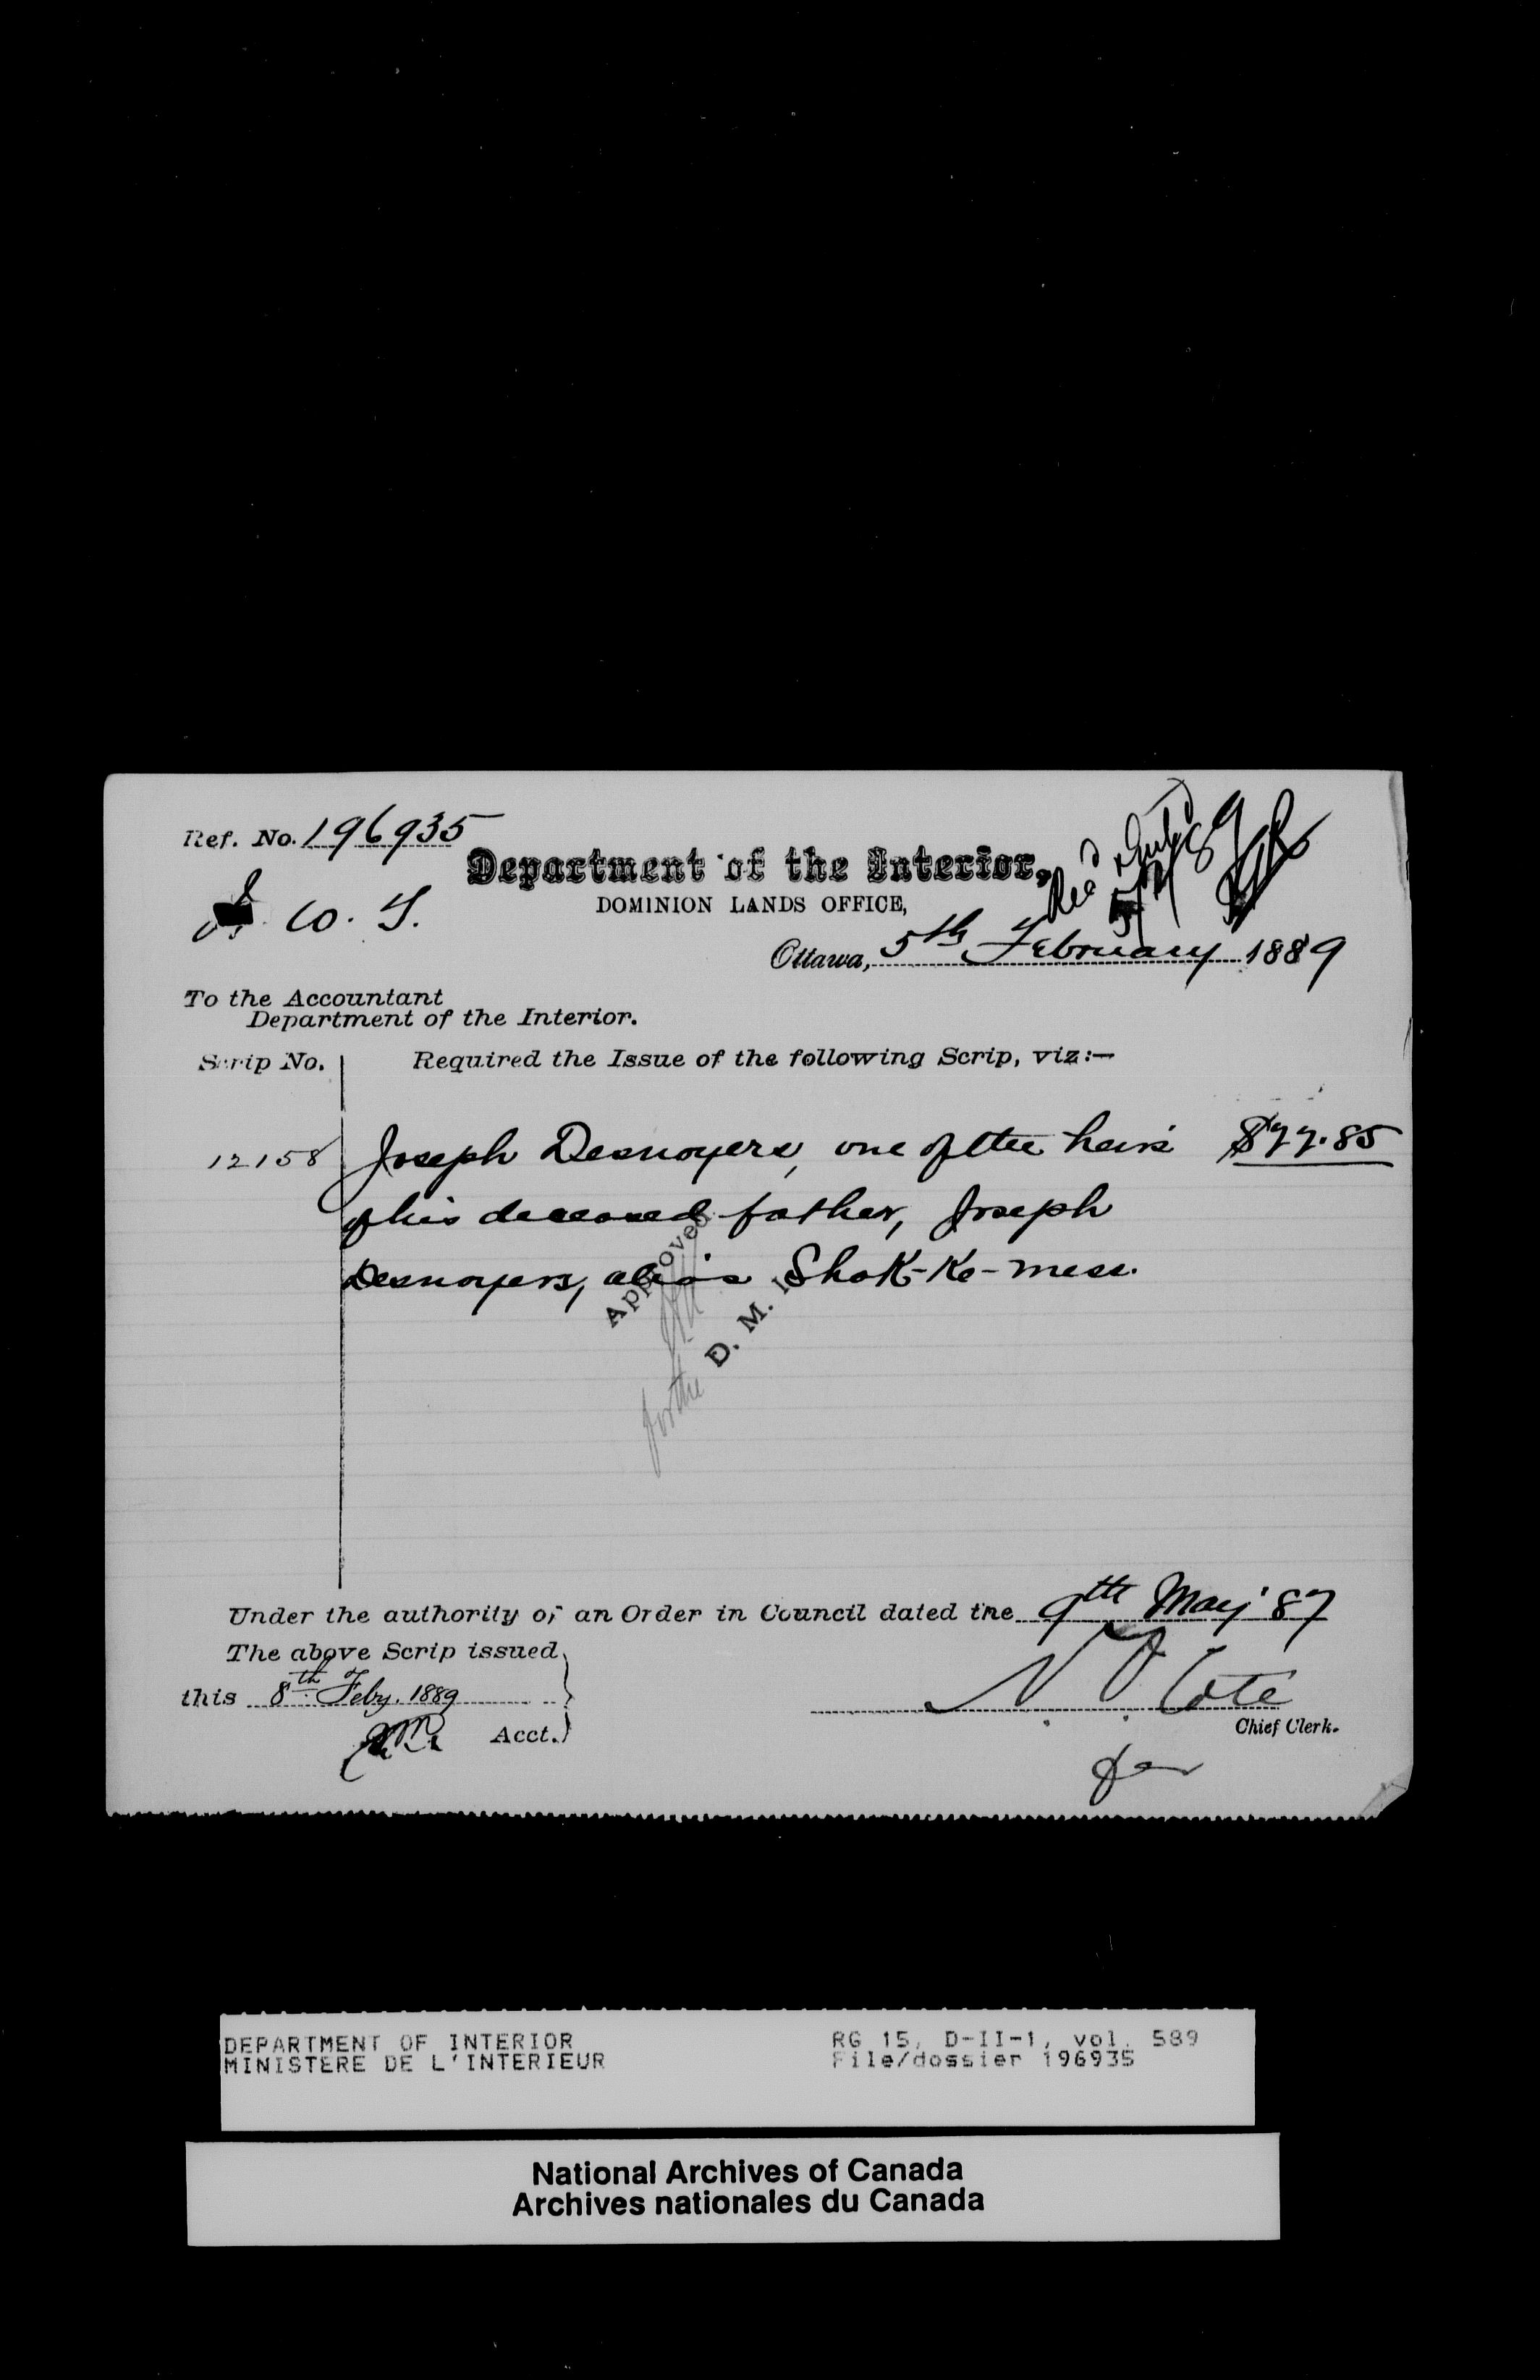 Ref. No. 196935
Department of the Interior,
DOMINION LANDS OFFICE,
Ottawa, 5th February 1889
To the Accountant
Department of the Interior.
Scrip No. Required the Issue of the following Scrip, viz:—
12158 Joseph Desnoyers, one of the heirs $77.85
of his deceased father, Joseph
Desnoyers, alias Shok-Ke-mess.
Approved
for the D. M. I.
Under the authority of an Order in Council dated the 9th May '87
The above Scrip issued
this 8th Feby. 1889
Acct.
N. O. Coté
Chief Clerk.
DEPARTMENT OF INTERIOR RG 15, D-II-1, vol. 589
MINISTERE DE L'INTERIEUR File/dossier 196935
National Archives of Canada
Archives nationales du Canada